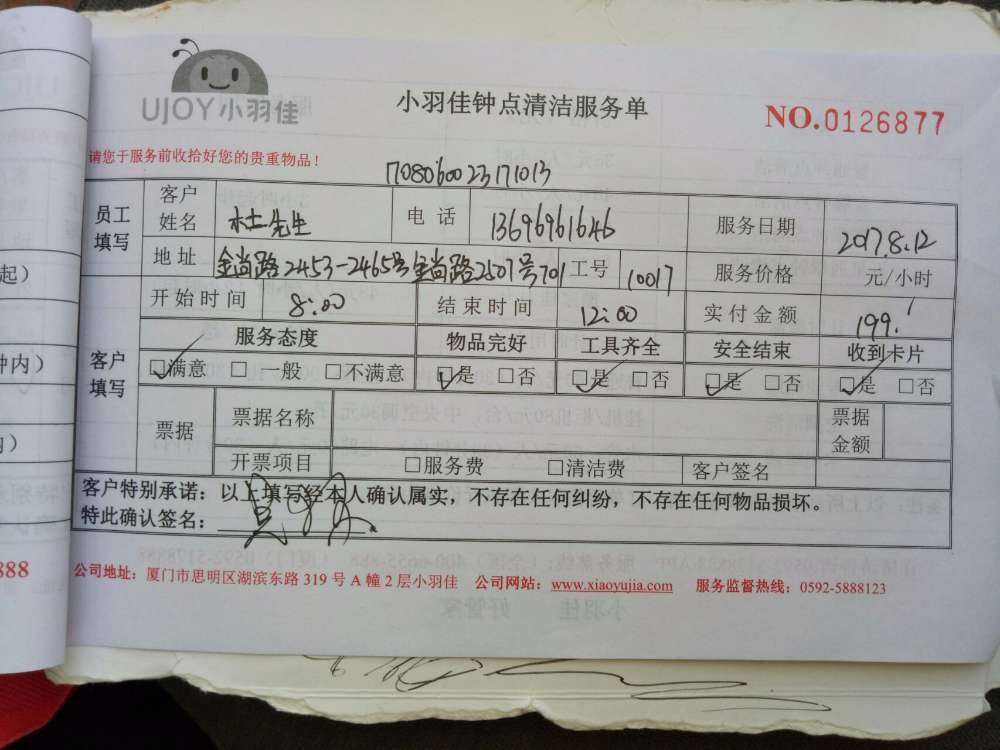 UJOY小羽佳
小羽佳钟点清洁服务单
NO.0126877
请您于服务前收拾好您的贵重物品！
17080600 23171013
员工填写 客户姓名 杜先生 电话 13696961646 服务日期 2017.8.12
地址 金尚路2453-2465号金尚路2507号701 工号 10017 服务价格 元/小时
客户填写 开始时间 8:00 结束时间 12:00 实付金额 199.
服务态度 物品完好 工具齐全 安全结束 收到卡片
☑满意 □一般 □不满意 ☑是 □否 ☑是 □否 ☑是 □否 ☑是 □否
票据 票据名称 票据金额
开票项目 □服务费 □清洁费 客户签名
客户特别承诺：以上填写经本人确认属实，不存在任何纠纷，不存在任何物品损坏。
特此确认签名：
公司地址：厦门市思明区湖滨东路 319 号 A 幢 2 层小羽佳 公司网站：www.xiaoyujia.com 服务监督热线：0592-5888123
起）
钟内）
888